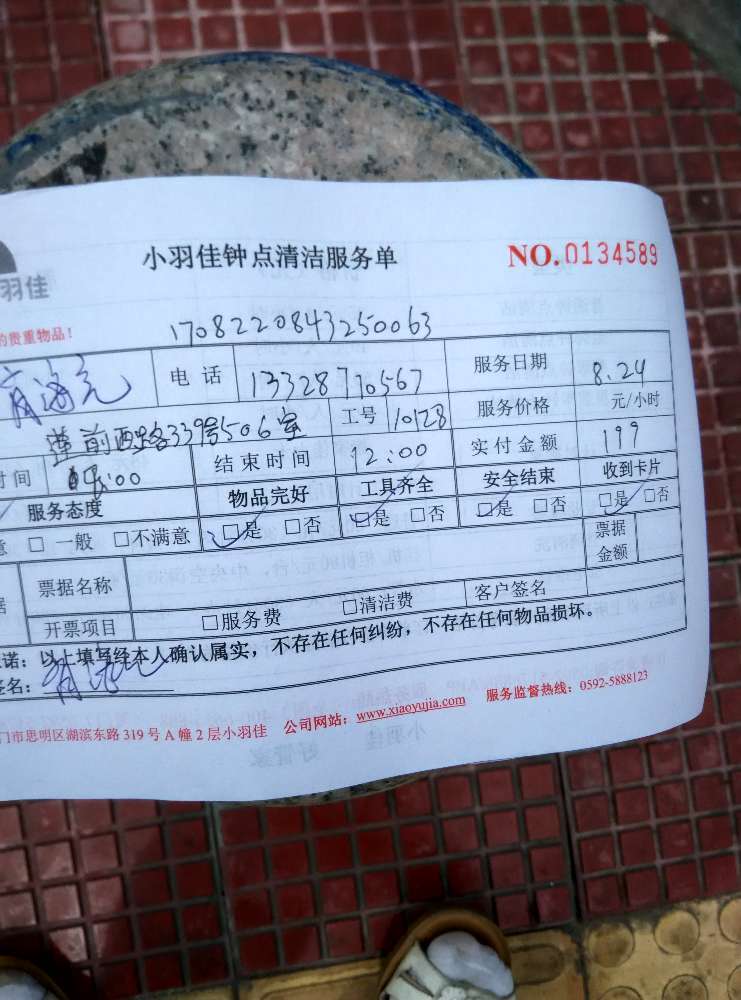 小羽佳钟点清洁服务单
NO.0134589
羽佳
的贵重物品!
1708220843250063
电话 13328770567 服务日期 8.24
莲前西路339号506室 工号 10128 服务价格 元/小时
时间 :00 结束时间 12:00 实付金额 199
服务态度 物品完好 工具齐全 安全结束 收到卡片
意 □ 一般 □不满意 □是 □否 □是 □否 □是 □否 □是 □否
据 票据名称 票据金额
开票项目 □服务费 □清洁费 客户签名
诺:以上填写经本人确认属实,不存在任何纠纷,不存在任何物品损坏。
签名:
门市思明区湖滨东路 319 号 A 幢 2 层小羽佳 公司网站:www.xiaoyujia.com 服务监督热线:0592-5888123